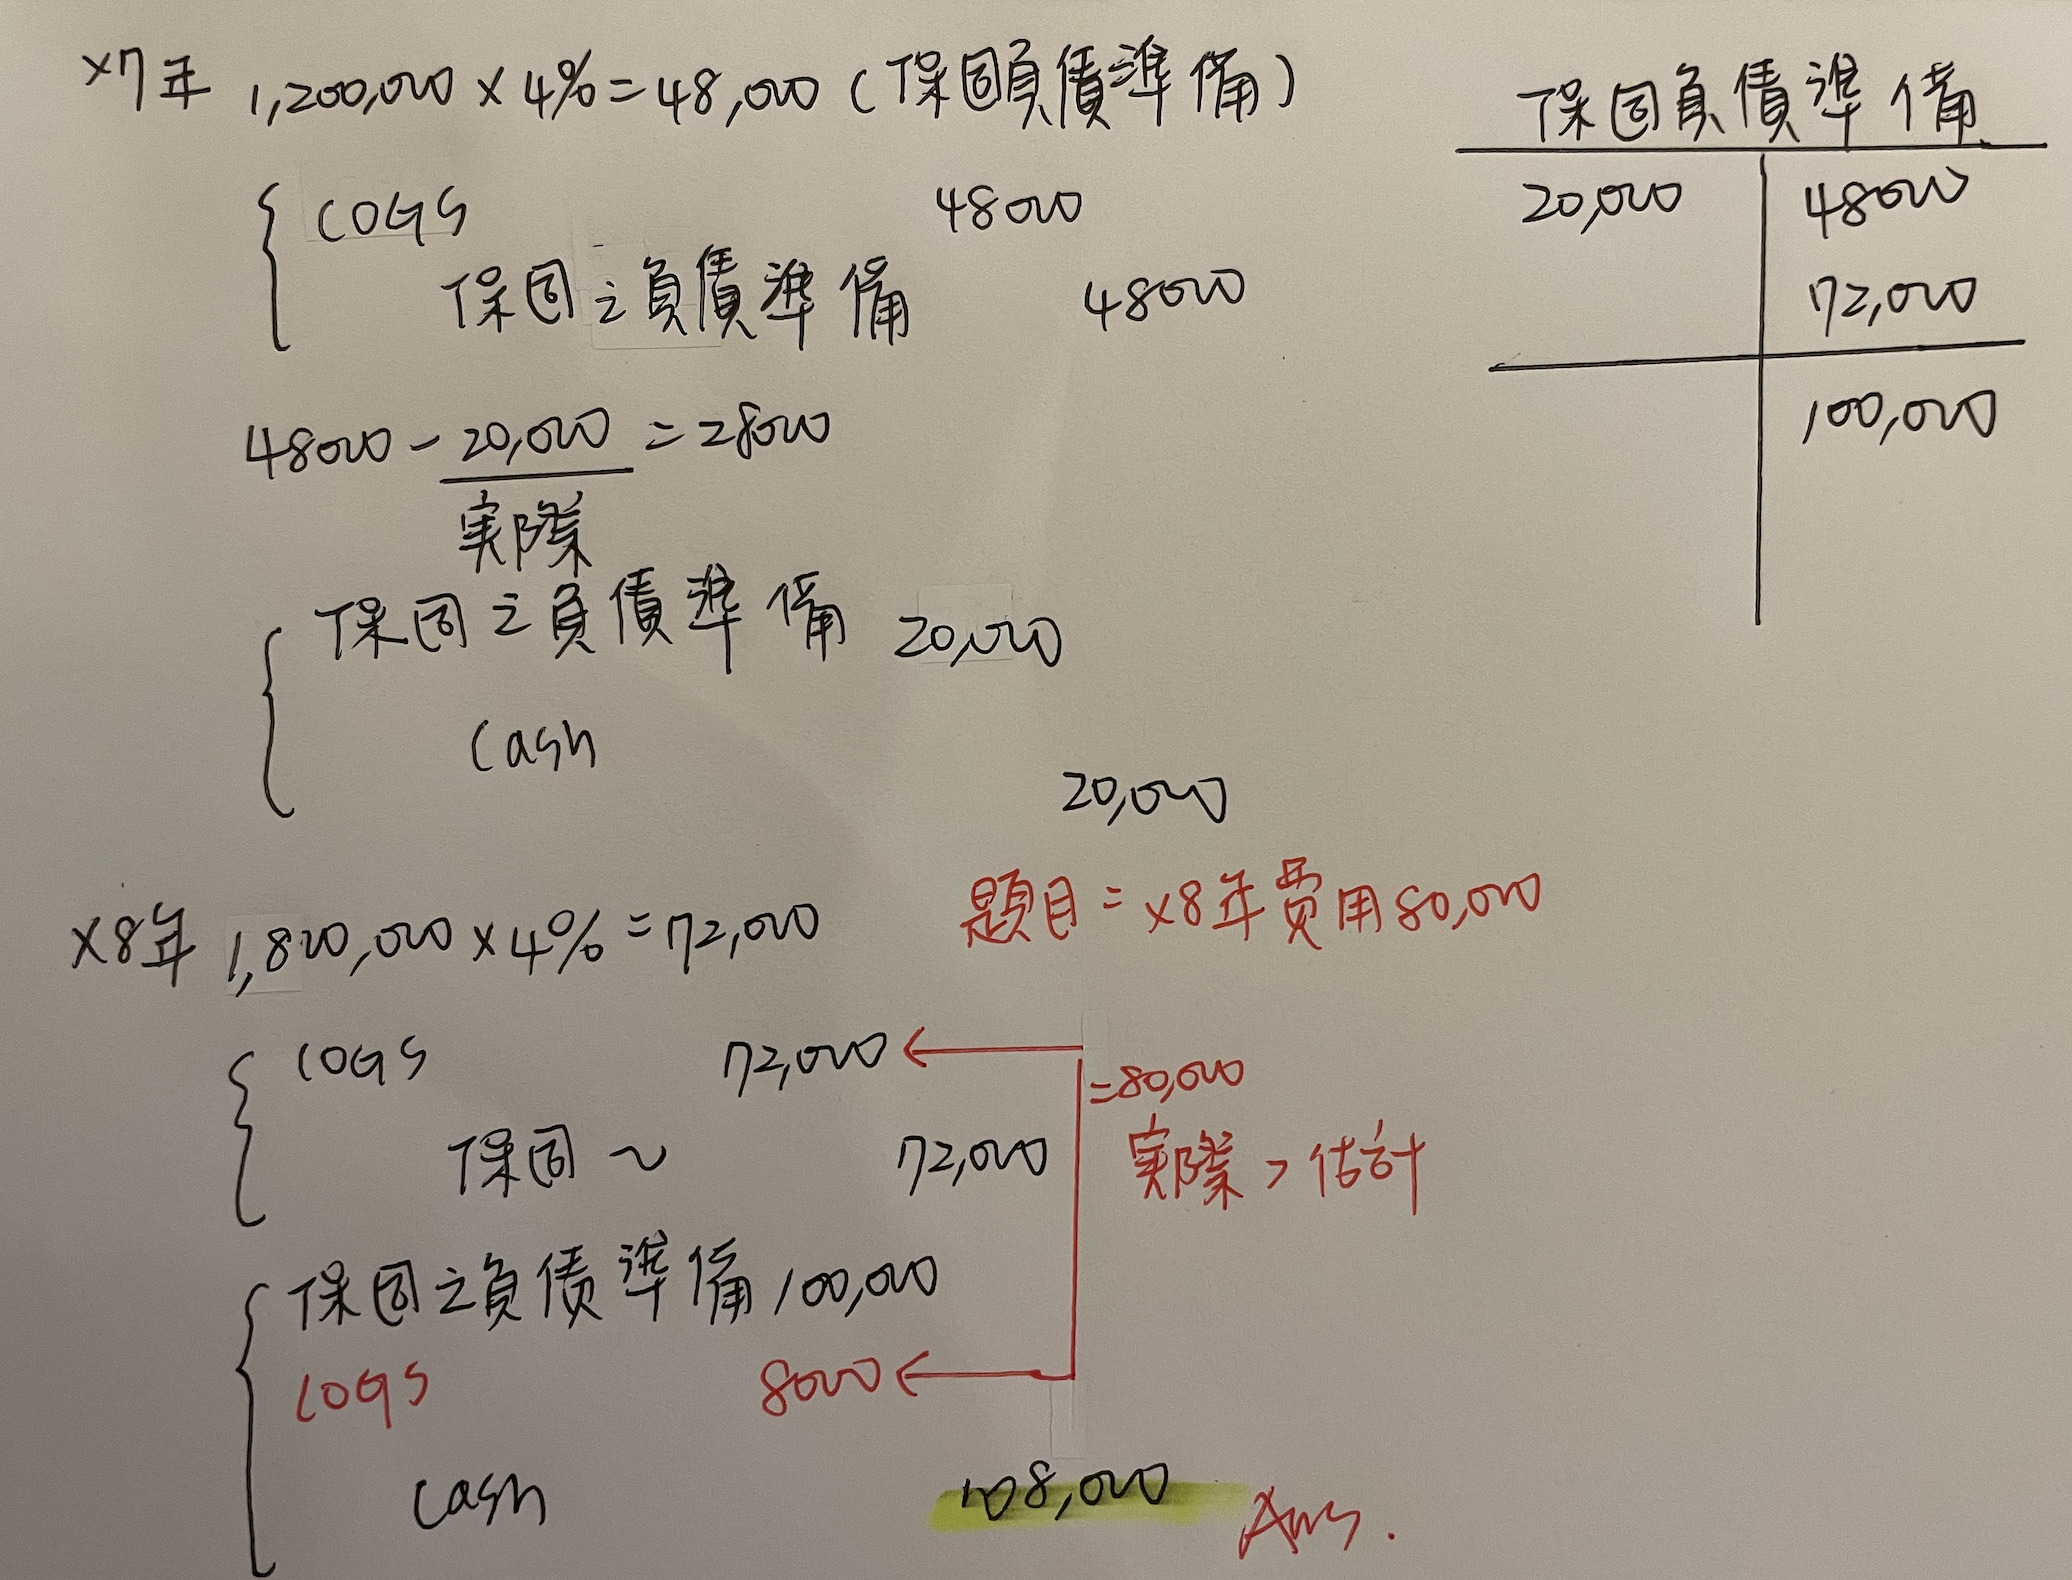 x7年 1,200,000 x 4% = 48,000 (保固負債準備)
COGS 48000
保固之負債準備 48000
48000 - 20,000 = 28000
実際
保固之負債準備 20,000
Cash
20,000
保固負債準備
20,000 48000
72,000
100,000
x8年 1,800,000 x 4% = 72,000
題目 = x8年費用80,000
COGS 72,000 ←
= 80,000
保固 ~ 72,000
実際 > 估計
保固之負債準備 100,000
COGS 8000 ←
Cash 108,000
Ans.